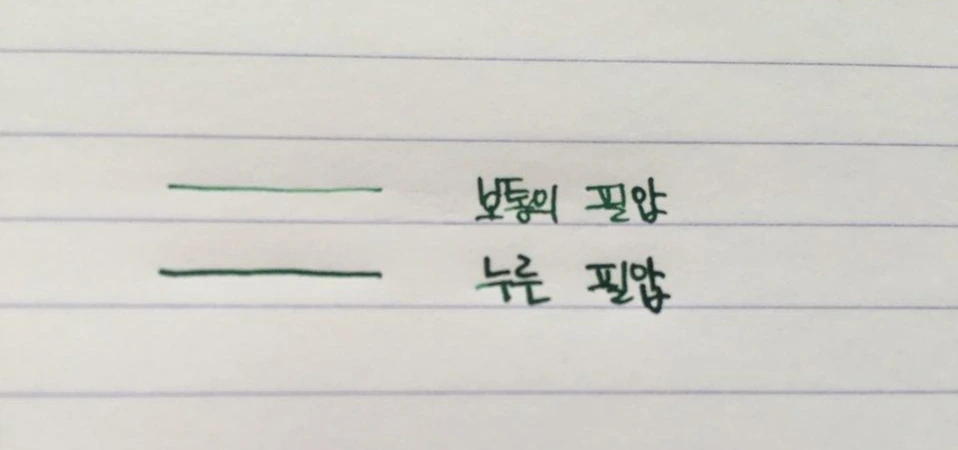 보통의 필압
누른 필압